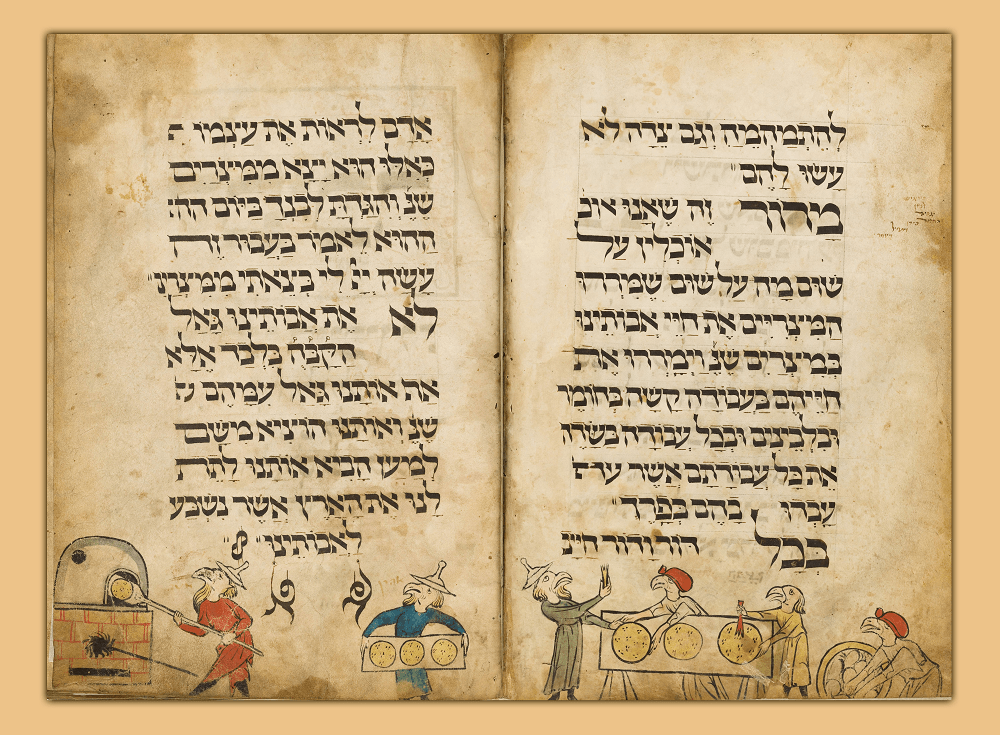 לְהִתְמַהְמֵהַּ וְגַם צֵדָה לֹא
עָשׂוּ לָהֶם
מָרוֹר זֶה שֶׁאָנוּ אוֹכ
אוֹכְלִין עַל
שׁוּם מַה עַל שׁוּם שֶׁמֵּרְרוּ
הַמִּצְרִיִּים אֶת חַיֵּי אֲבוֹתֵינוּ
בְּמִצְרַיִם שׁנ וַיְמָרְרוּ אֶת
חַיֵּיהֶם בַּעֲבוֹדָה קָשָׁה בְּחוֹמֶר
וּבִלְבֵינִים וּבְכָל עֲבוֹדָה בַּשָּׂדֶה
אֵת כָּל עֲבוֹדָתָם אֲשֶׁר
עָבְדוּ בָהֶם בְּפָרֶךְ
בְּכָל דּוֹר וָדוֹר חַיָּיב
אָדָם לִרְאוֹת אֶת עַצְמוֹ
כְּאִלּוּ הוּא יָצָא מִמִּצְרַיִם
שׁנ וְהִגַּדְתָּ לְבִנְךָ בַּיּוֹם הה
הַהוּא לֵאמֹר בַּעֲבוּר זֶה
עָשָׂה ייי לִי בְּצֵאתִי מִמִּצְרָיִם
לֹא אֶת אֲבוֹתֵינוּ גָּאַל
הקבה בִּלְבַד אֶלָּא
אַף אוֹתָנוּ גָּאַל עִמָּהֶם
שׁנ וְאוֹתָנוּ הוֹצִיא מִשָּׁם
לְמַעַן הָבִיא אוֹתָנוּ לָתֵת
לָנוּ אֶת הָאָרֶץ אֲשֶׁר נִשְׁבַּע
לַאֲבוֹתֵינוּ